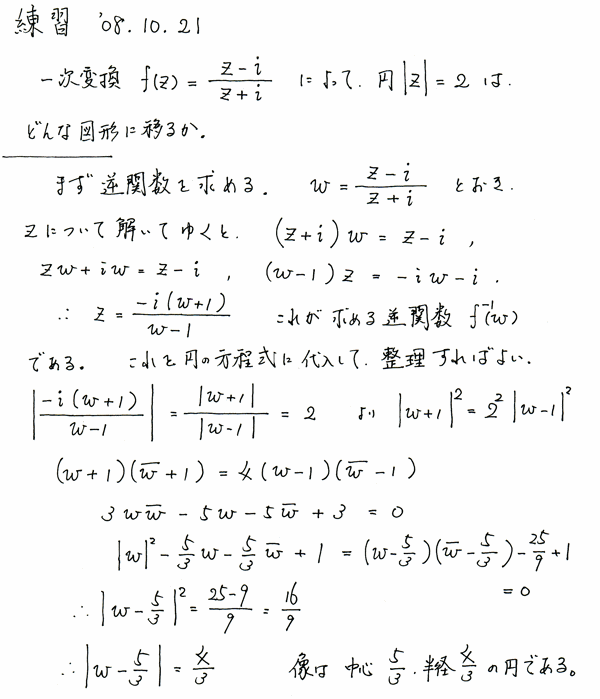 練習 '08.10.21
一次変換 f(z) = \frac{z-i}{z+i} によって、円 |z| = 2 は、
どんな図形に移るか。
まず逆関数を求める。 w = \frac{z-i}{z+i} とおき、
zについて解いてゆくと、 (z+i)w = z-i ,
zw+iw = z-i , (w-1)z = -iw-i .
∴ z = \frac{-i(w+1)}{w-1} これが求める逆関数 f^{-1}(w)
である。 これを円の方程式に代入して、整理すればよい.
\left|\frac{-i(w+1)}{w-1}\right| = \frac{|w+1|}{|w-1|} = 2 より |w+1|^2 = 2^2 |w-1|^2
(w+1)(\overline{w}+1) = 4(w-1)(\overline{w}-1)
3w\overline{w} - 5w - 5\overline{w} + 3 = 0
|w|^2 - \frac{5}{3}w - \frac{5}{3}\overline{w} + 1 = (w-\frac{5}{3})(\overline{w}-\frac{5}{3}) - \frac{25}{9} + 1
= 0
∴ |w-\frac{5}{3}|^2 = \frac{25-9}{9} = \frac{16}{9}
∴ |w-\frac{5}{3}| = \frac{4}{3} 像は 中心 \frac{5}{3}、半径 \frac{4}{3} の円である。